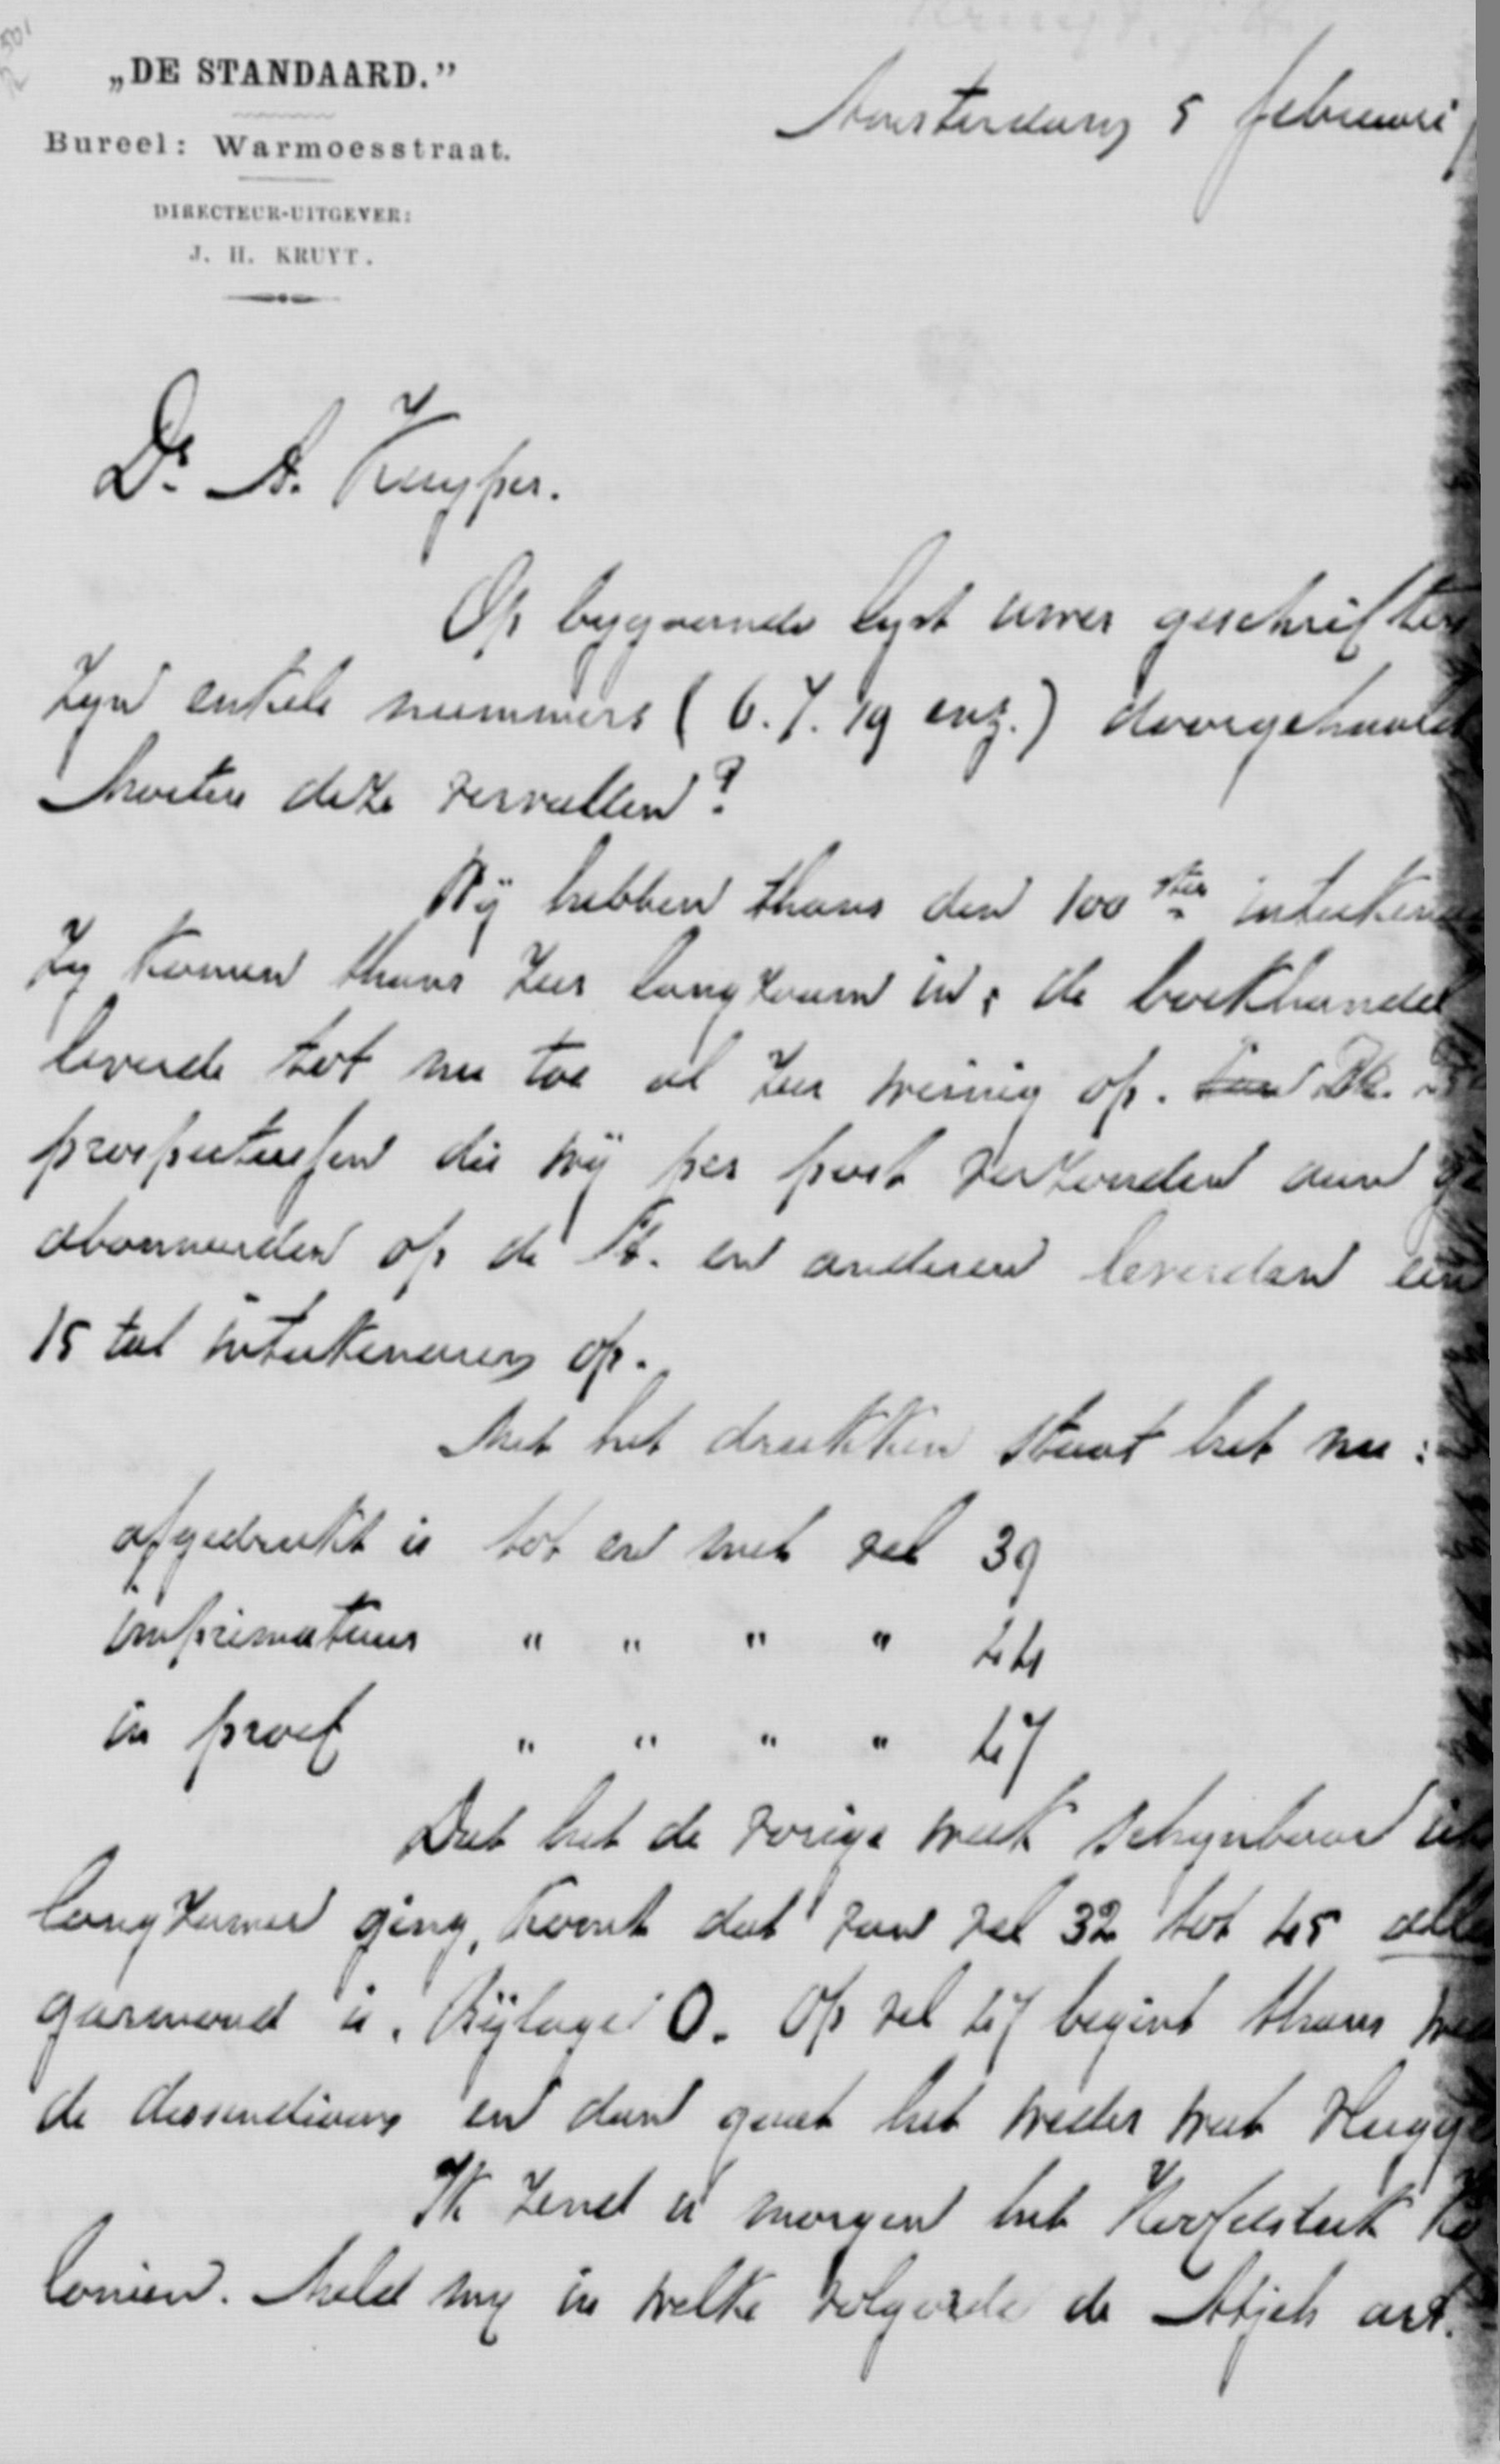 „DE STANDAARD.”
Bureel: Warmoesstraat.
DIRECTEUR-UITGEVER:
J. H. KRUYT.
Amsterdam 5 februari
Dr. A. Kuyper.
Op bygaande lyst uwer geschriften
zyn enkele nummers (6. 7. 19 enz.) doorgehaald
Moeten deze vervallen?
Wij hebben thans den 100sten
Zy komen thans zeer langzaam in; de boekhandel
leverde tot nu toe al zeer weinig op. De
prospectussen die wij per post verzonden aan
abonneerden op de St. en anderen leverden een
15 tal inteekenaren op.
Met het drukken staat het nu:
afgedrukt is tot en met vel 39
imprimatuur " " " " 44
in proef " " " " 47
Dat het de vorige week schynbaar
langzamer ging, komt dat van vel 32 tot 45
garmond is. Bijlage O. Op vel 47 begint thans
de dessendiaan en dan gaat het weder wat
Ik zend u morgen het Hoofdstuk Ko
loniën. Meld my in welke volgorde de Atjeh art.